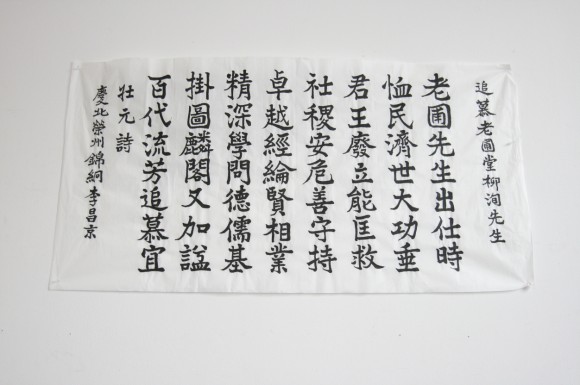 追慕老圃堂柳洵先生
老圃先生出仕時
恤民濟世大功垂
君王廢立能匡救
社稷安危善守持
卓越經綸賢相業
精深學問德儒基
掛圖麟閣又加諡
百代流芳追慕宜
壯元詩
慶北榮州錦絅李昌京